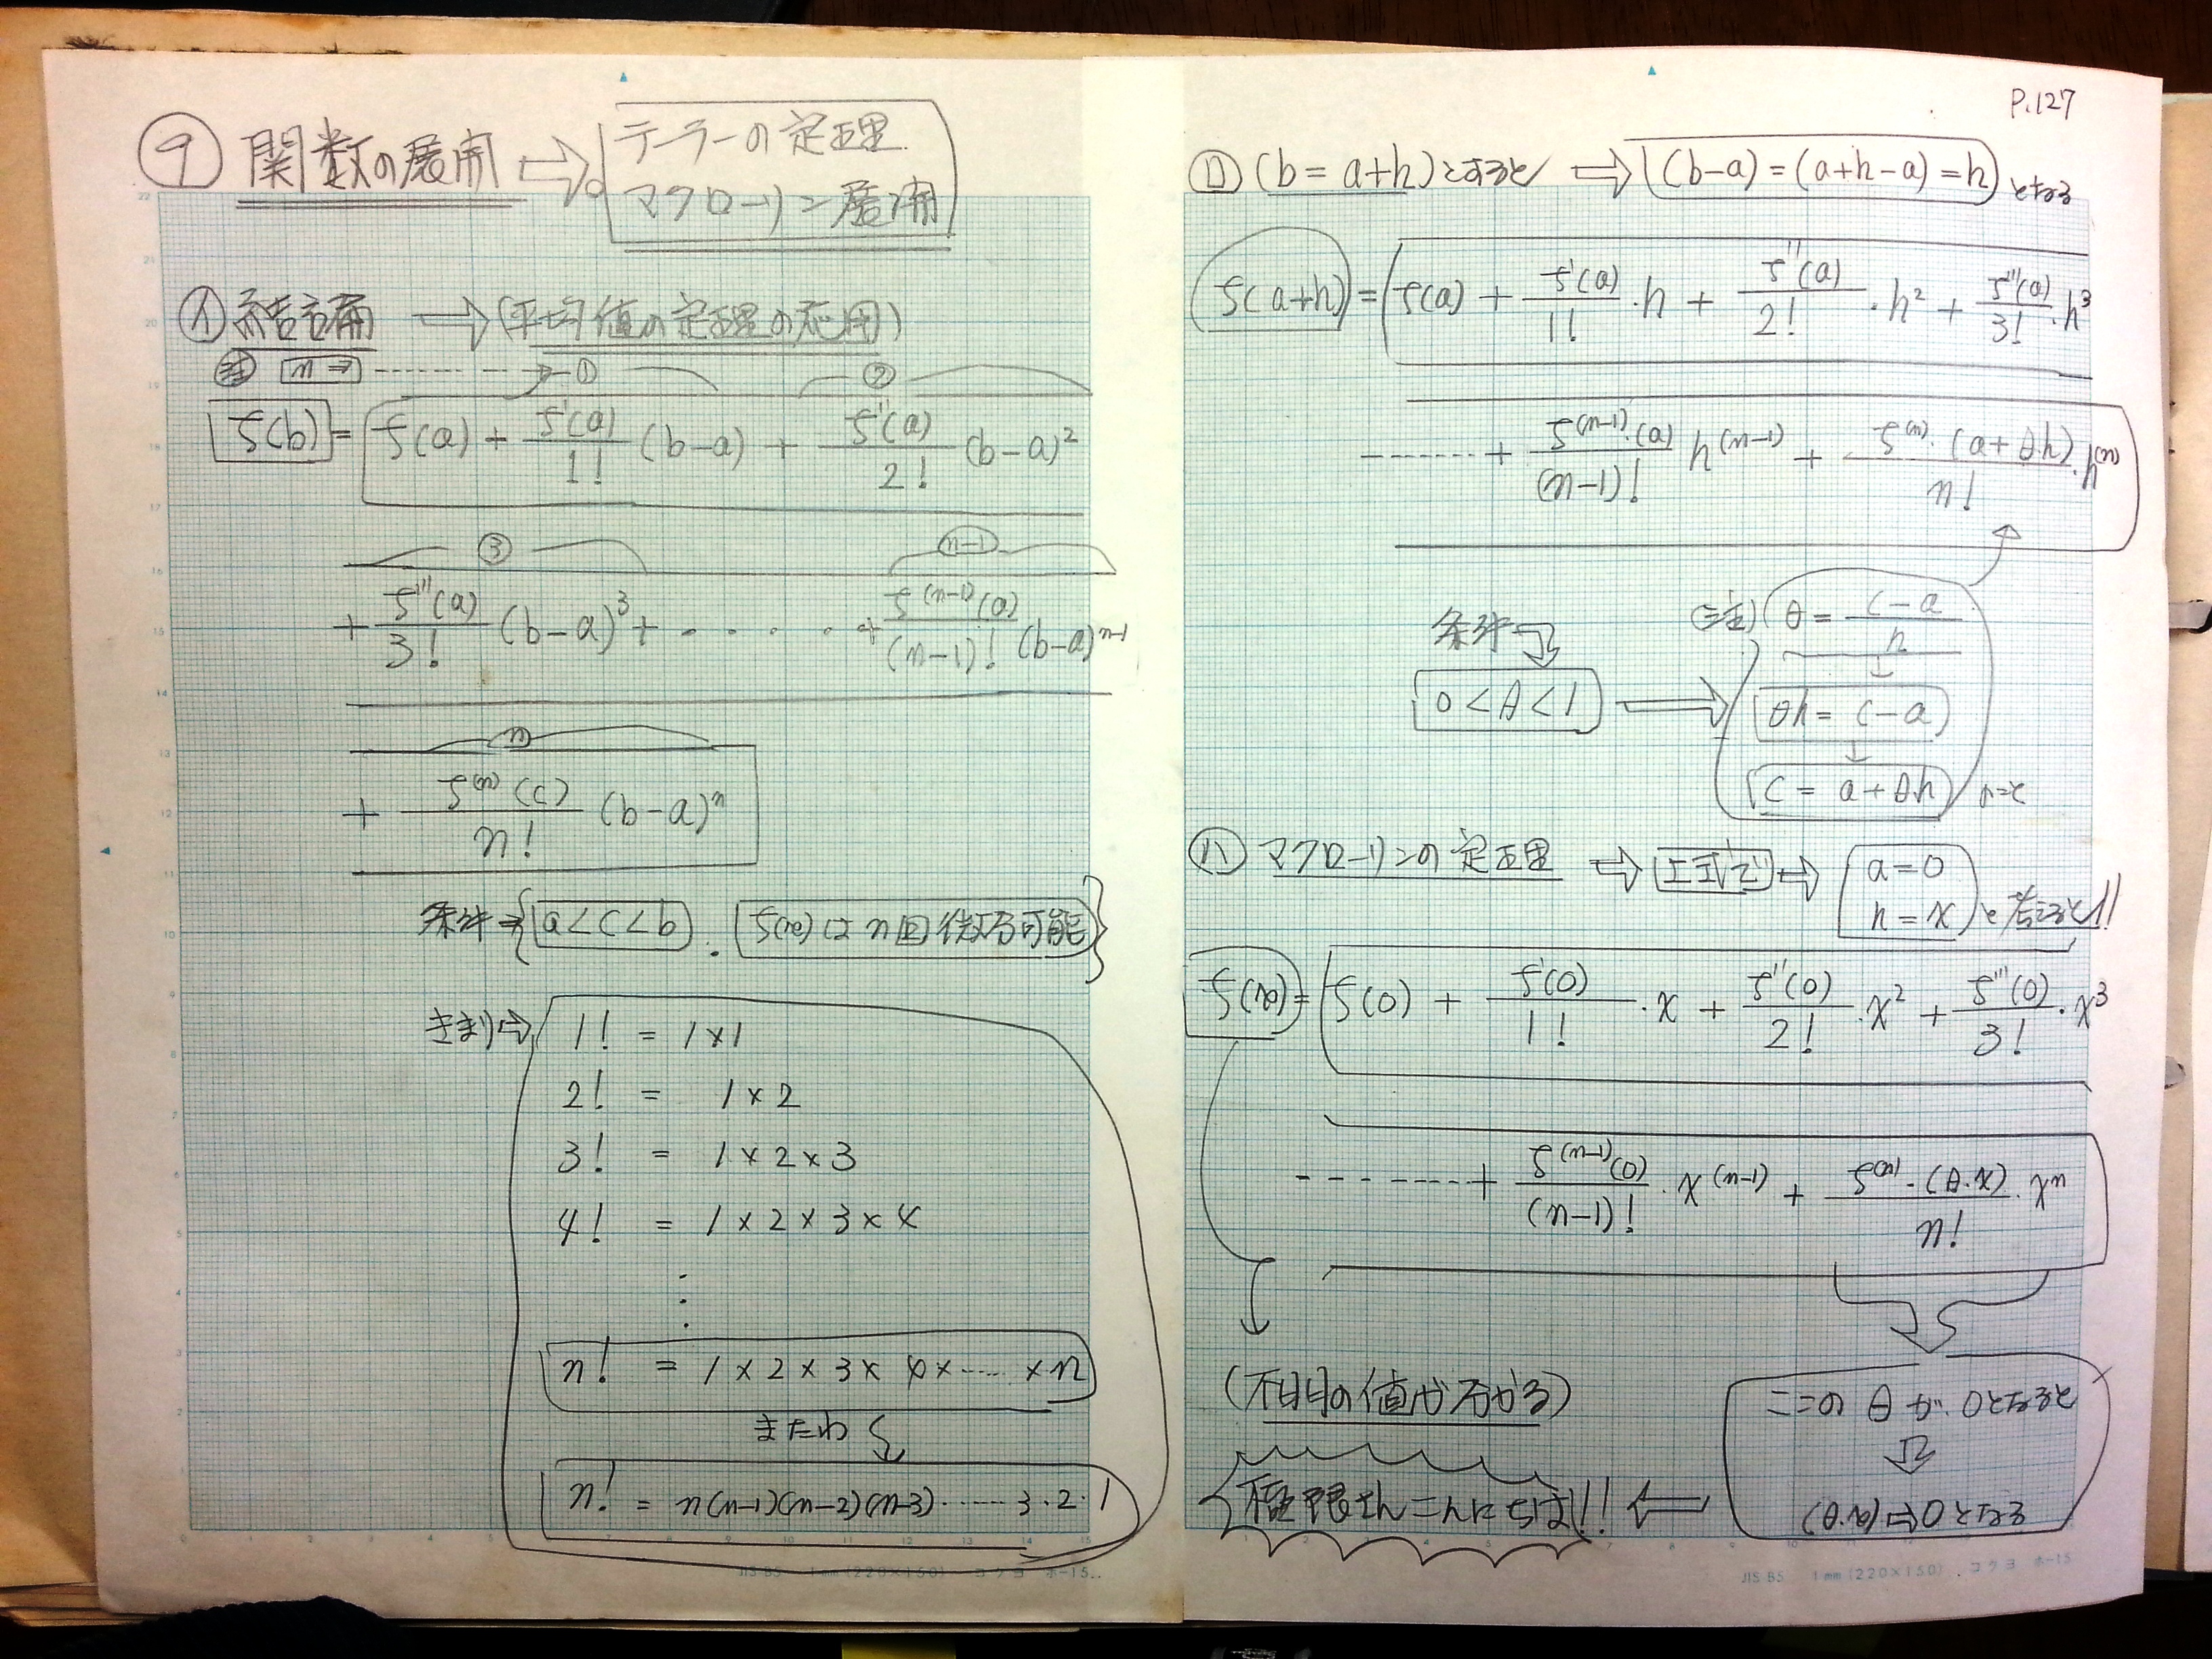 ⑨ 関数の展開 ⇒ テーラーの定理
マクローリン展開
㋑ 結論 → (平均値の定理の応用)
注 n ⇒ --------→ ① ②
f(b) = f(a) + f'(a)/1! (b-a) + f''(a)/2! (b-a)²
③ n-1
+ f'''(a)/3! (b-a)³ + ・・・・ + f⁽ⁿ⁻¹⁾(a)/(n-1)! (b-a)ⁿ⁻¹
n
+ f⁽ⁿ⁾(c)/n! (b-a)ⁿ
条件 ⇒ { a<c<b . f(x)は n回微分可能 }
きまり⇒ 1! = 1×1
2! = 1×2
3! = 1×2×3
4! = 1×2×3×4
:
n! = 1×2×3×4×‥‥×n
またわ
n! = n(n-1)(n-2)(n-3)‥‥‥3・2・1
JIS B5 1mm (220×150) コクヨ ホ-15
P.127
㋺ (b = a+h)とすると ⇒ (b-a) = (a+h-a) = h となる
f(a+h) = f(a) + f'(a)/1! ・h + f''(a)/2! ・h² + f'''(a)/3! ・h³
------- + f⁽ⁿ⁻¹⁾・(a)/(n-1)! h⁽ⁿ⁻¹⁾ + f⁽ⁿ⁾・(a+θh)/n! ・h⁽ⁿ⁾
条件 (注) θ = c-a/h
0<θ<1 ⇒ θh = c-a
c = a+θh
㋩ マクローリンの定理 ⇒ 上式で ⇒ a=0
h=x と考えると!!
f(x) = f(0) + f'(0)/1! ・x + f''(0)/2! ・x² + f'''(0)/3! ・x³
-------- + f⁽ⁿ⁻¹⁾(0)/(n-1)! ・x⁽ⁿ⁻¹⁾ + f⁽ⁿ⁾・(θ・x)/n! ・xⁿ
(不明の値が分かる)
ここの θ が 0となると
(θ・x)⇒0となる
極限さんこんにちは!!
JIS B5 1mm (220×150) コクヨ ホ-15